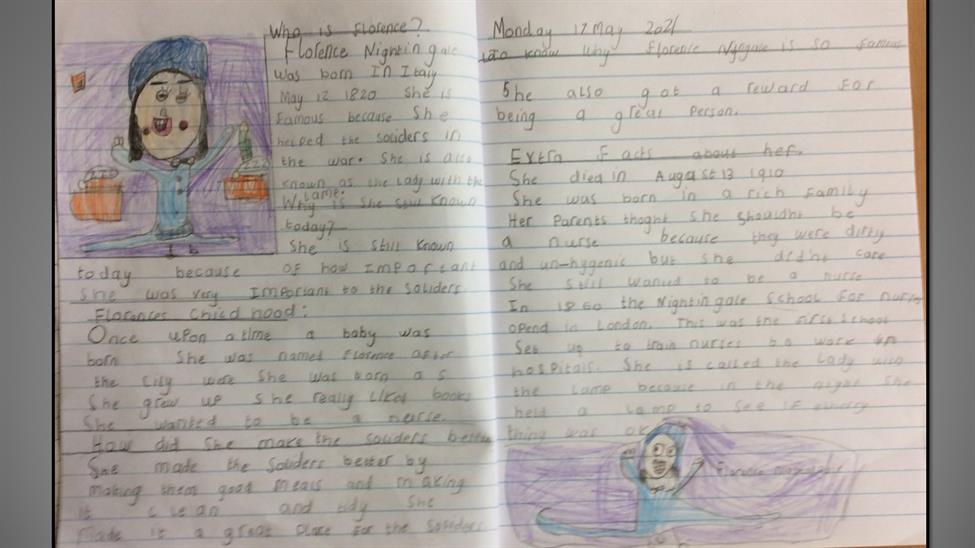 Who is Florence?
Florence Nightingale
was born In Italy
May 12 1820 She is
famous because She
helped the soliders in
the war. She is also
known as the lady with the
lamp.
Why is She still known
today?
She is still known
today because of how Important
She was very Important to the soliders.
Florences Childhood:
Once upon a time a baby was
born She was named Florence after
the City were She was born as
She grew up She really liked books
She wanted to be a nurse.
How did She make the soliders better
She made the soliders better by
making them good meals and making
it clean and tidy She
made it a great place for the soliders
Monday 17 May 2021
know why Florence is so famous
She also got a reward For
being a great Person.
Extra facts about her.
She died in August 13 1910
She was born in a rich family
Her Parents thoght She Shouldnt be
a nurse because they were dirty
and un-hygenic but She did'nt care
She still wanted to be a nurse
In 1860 the Nightingale School For
opend in London. This was the first School
Set up to train nurses to work in
hospitals. She is called the Lady with
the Lamp because in the night She
held a Lamp to See if
thing was ok
Florence